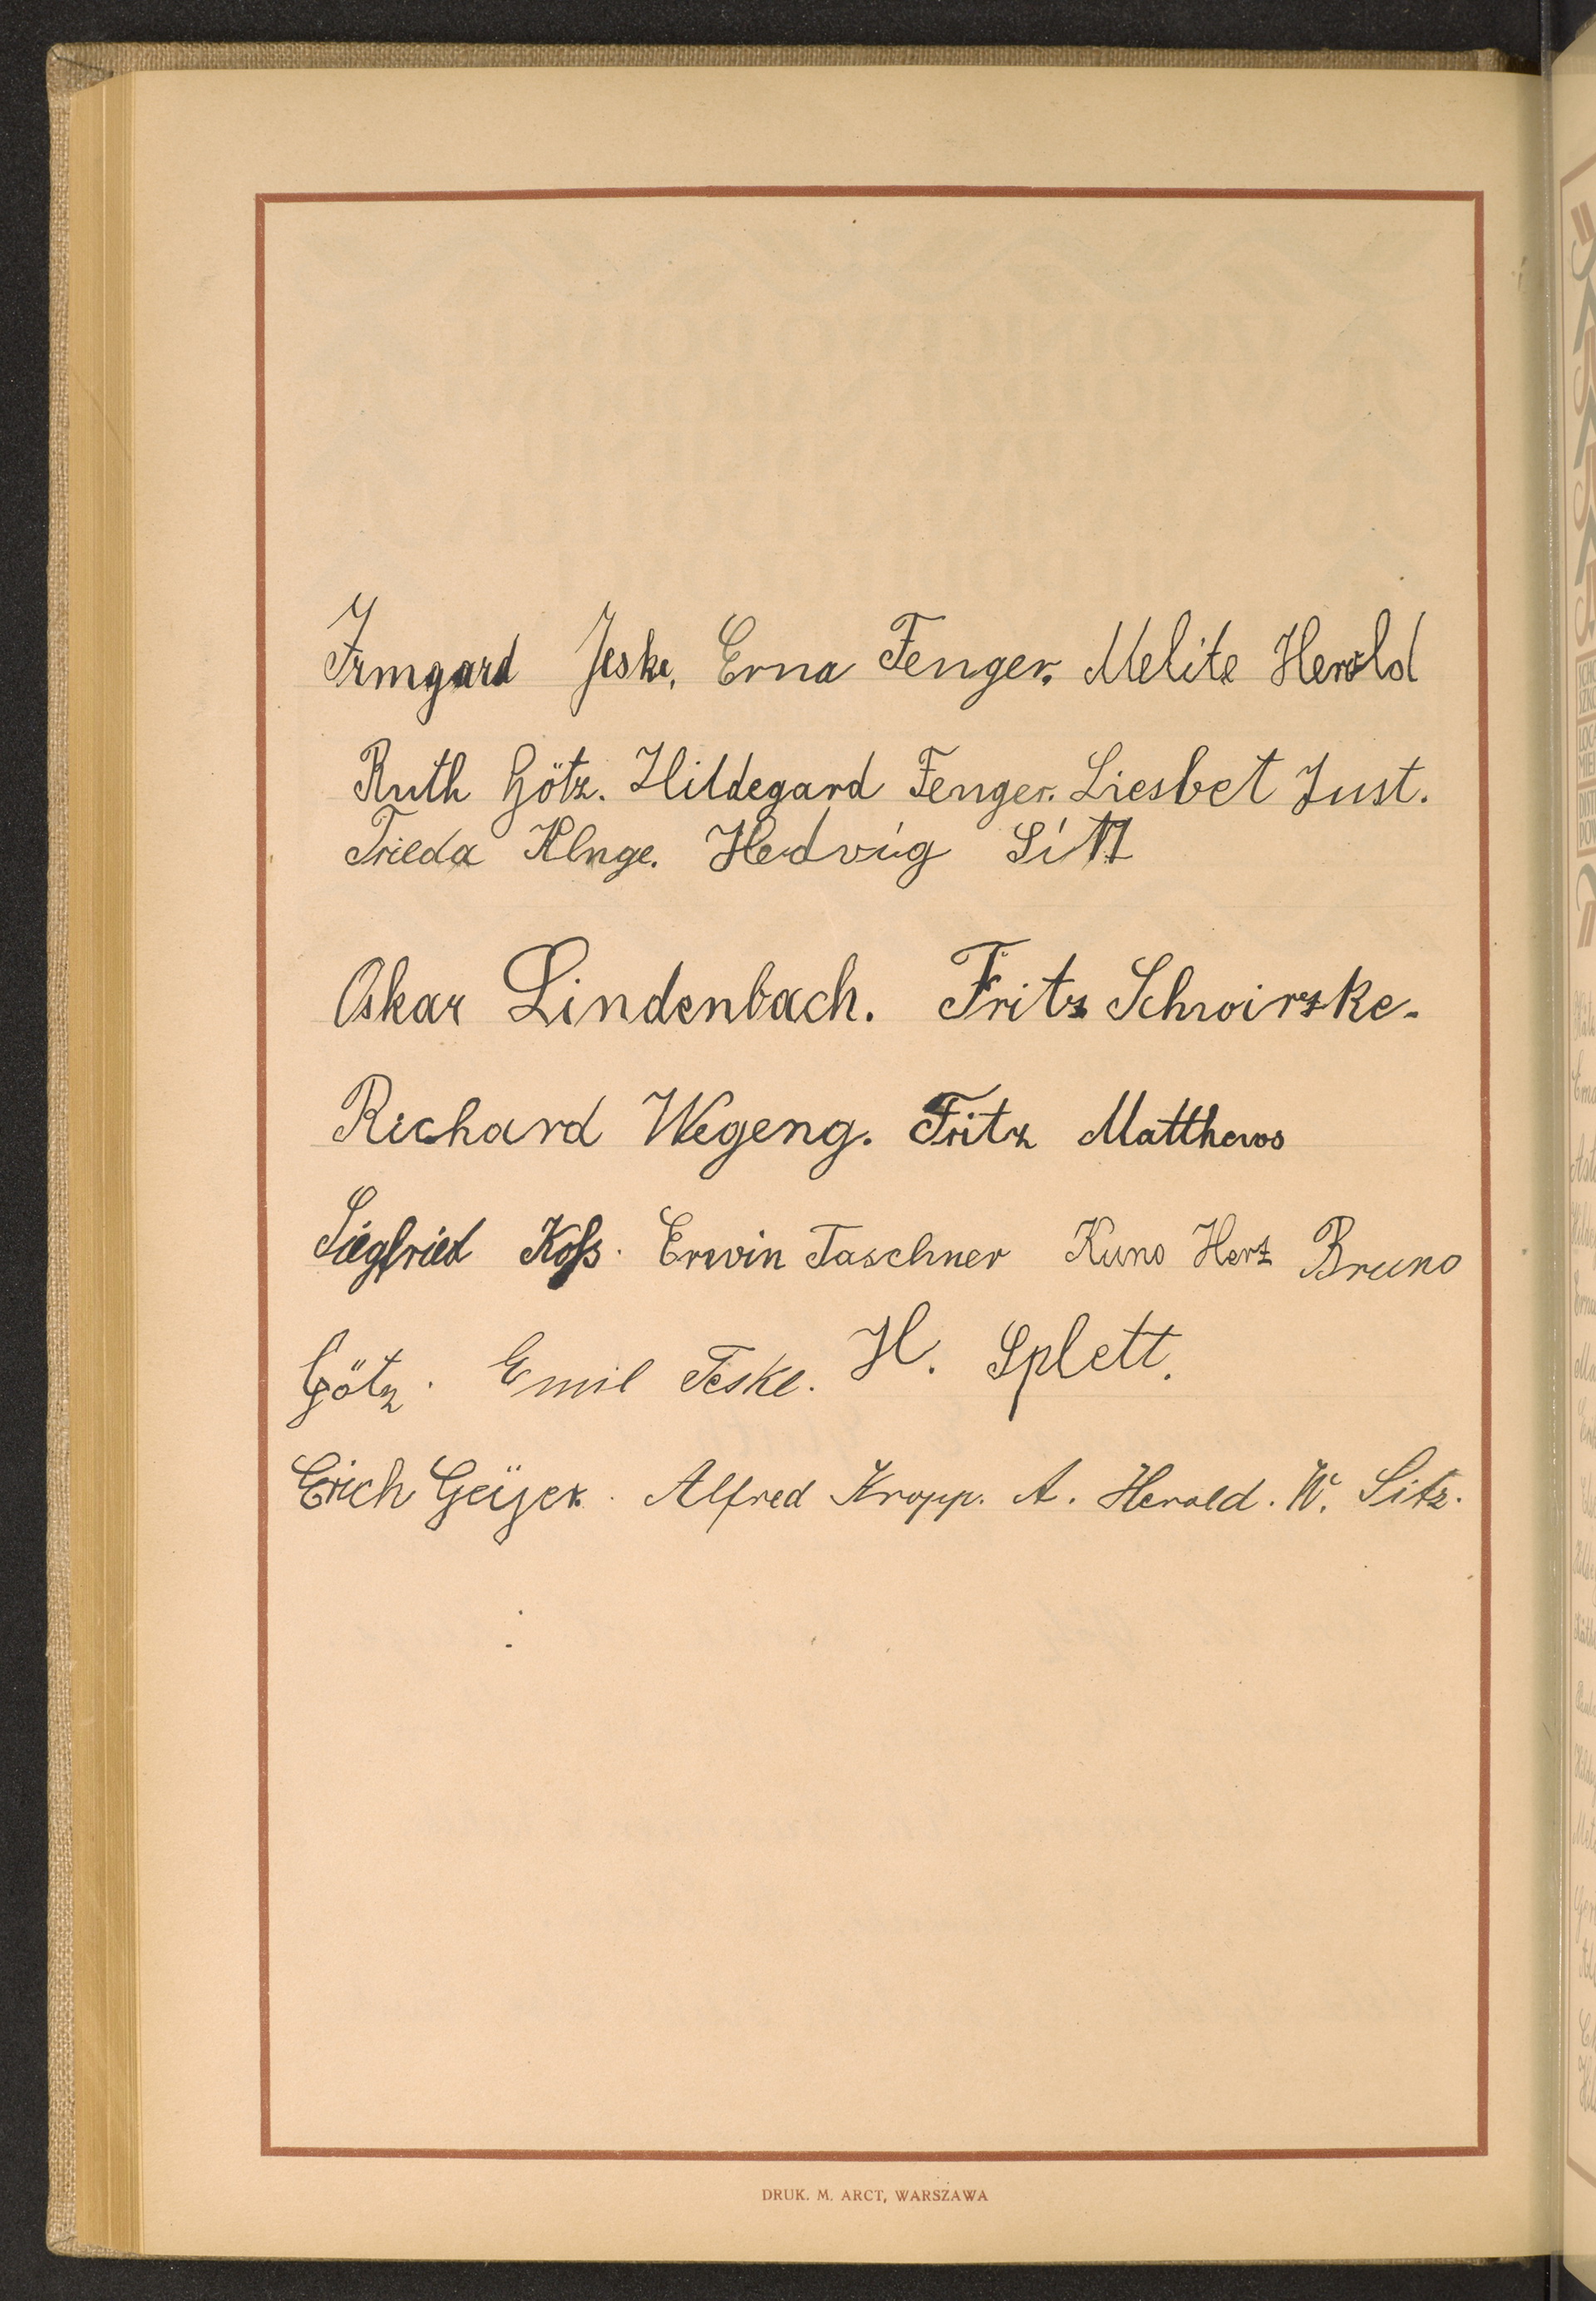 Irmgard Jeske, Erna Fenger. Melite Herold
Ruth Götz. Hildegard Fenger. Liesbet Just.
Frieda Klnge. Hedvig Sitt
Oskar Lindenbach. Fritz Schwirzke.
Richard Wegeng. Fritz Matthews
Siegfried Koß. Erwin Taschner Kuno Herz Bruno
Götz. Emil Teske. H. Splett.
Erich Geijer. Alfred Kropp. A. Herold. W. Sitz.
DRUK. M. ARCT, WARSZAWA